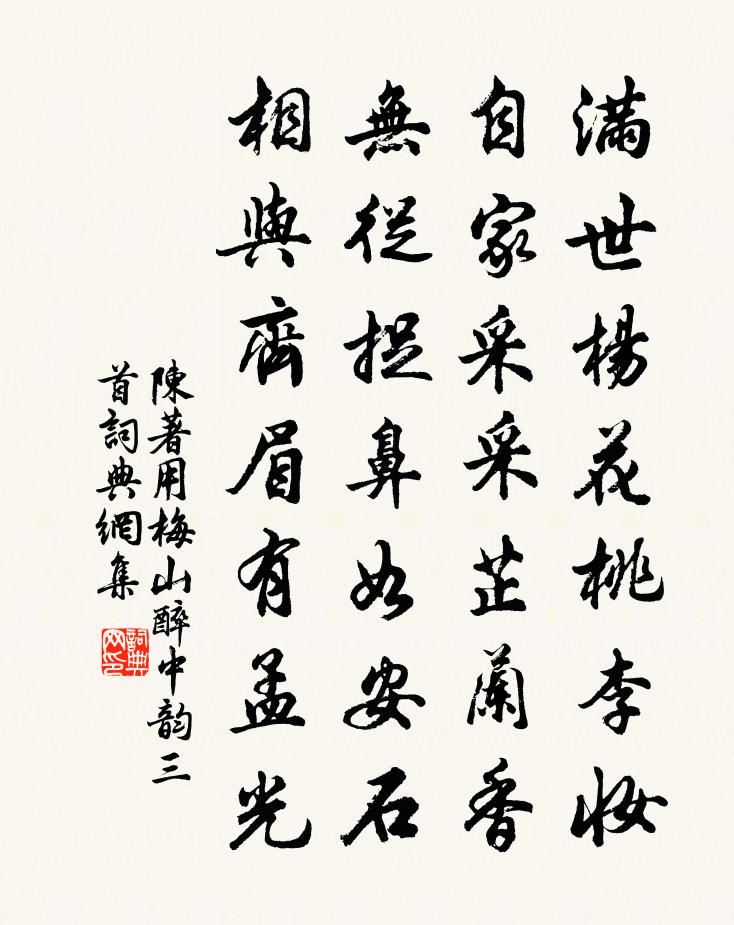 滿世楊花桃李妝
自家采采芷蘭香
無從捉鼻如安石
相與齊眉有孟光
陳著用梅山醉中韵三
首詞典網集
詞典网印